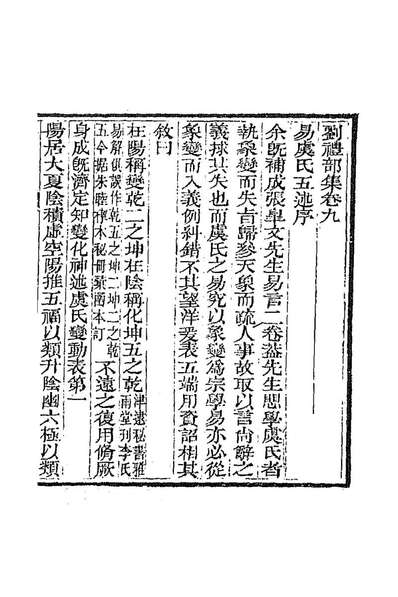 劉禮部集卷九
易虞氏五述序
余既補成張皐文先生易言二卷蓋先生思學虞氏者
執象變而失肯歸參天象而疏人事故取以言尚辭之
義球其失也而虞氏之易究以象變爲宗學易亦必從
象變而入義例糾錯不其望洋爰表五端用資詔相其
敘曰
在陽稱變乾二之坤在陰稱化坤五之乾津逮秘書雅雨堂刊李氏
易解俱誤作乾五之坤二坤二之乾
五今據朱睦㮮本秘冊彙函本訂不遠之復用脩厥
身成既濟定知變化神述虞氏變動表第一
陽居大夏陰積虛空陽推五福以類升陰幽六極以類